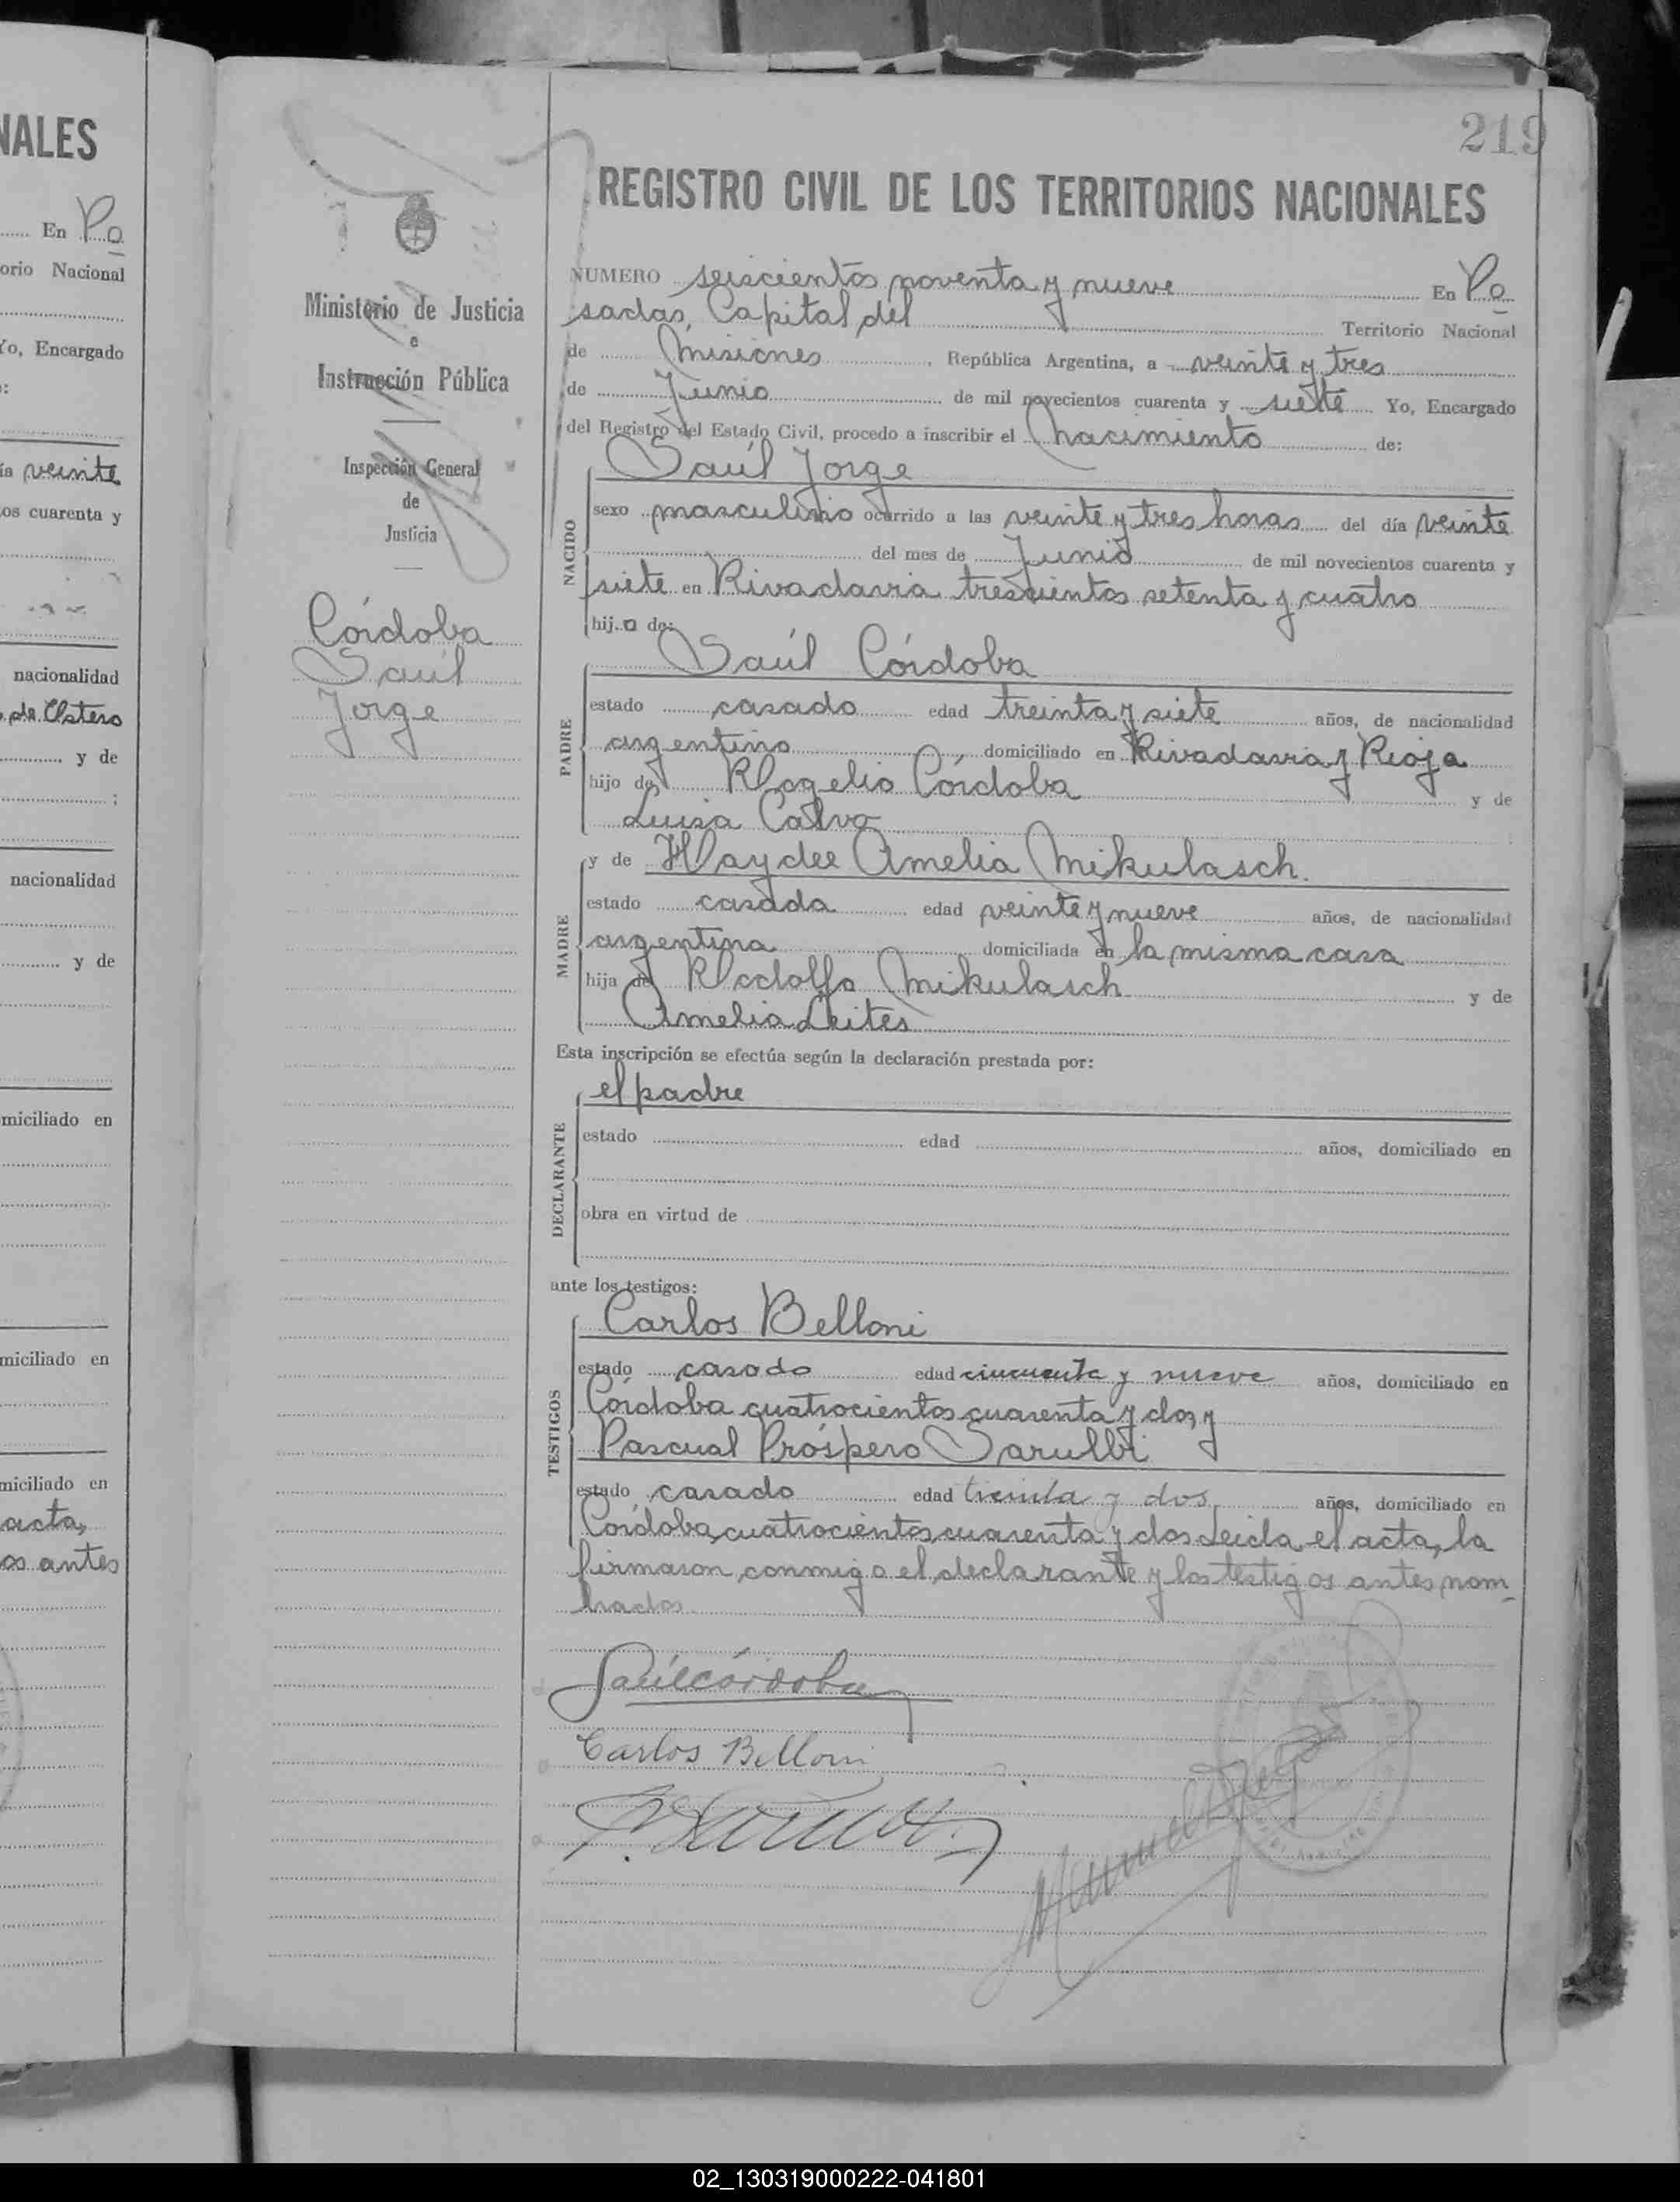 NALES
En Po
orio Nacional
Yo, Encargado
ía veinte
os cuarenta y
nacionalidad
y de
;
nacionalidad
y de
miciliado en
miciliado en
miciliado en
acta,
os antes
219
REGISTRO CIVIL DE LOS TERRITORIOS NACIONALES
Ministerio de Justicia
e
Instrucción Pública
Inspección General
de
Justicia
Córdoba
Saúl
Jorge
NUMERO seiscientos noventa y nueve En Po
sadas, Capital del Territorio Nacional
de Misiones, República Argentina, a veinte y tres
de Junio de mil novecientos cuarenta y siete Yo, Encargado
del Registro del Estado Civil, procedo a inscribir el nacimiento de:
Saúl Jorge
NACIDO
sexo masculino ocurrido a las veinte y tres horas del día veinte
del mes de Junio de mil novecientos cuarenta y
siete en Rivadavia trescientos setenta y cuatro
hijo de:
Saúl Córdoba
PADRE
estado casado edad treinta y siete años, de nacionalidad
argentino, domiciliado en Rivadavia y Rioja
hijo de Rogelio Córdoba y de
Luisa Calvo
y de Haydee Amelia Mikulasch.
MADRE
estado casada edad veinte y nueve años, de nacionalidad
argentina domiciliada en la misma casa
hija de Rodolfo Mikulasch y de
Amelia Leites
Esta inscripción se efectúa según la declaración prestada por:
el padre
DECLARANTE
estado edad años, domiciliado en
obra en virtud de
ante los testigos:
Carlos Belloni
TESTIGOS
estado casado edad cincuenta y nueve años, domiciliado en
Córdoba cuatrocientos cuarenta y dos, y
Pascual Próspero Sarubbi
estado casado edad treinta y dos años, domiciliado en
Córdoba, cuatrocientos cuarenta y dos Leida el acta, la
firmaron conmigo el declarante y los testigos antes nom
brados
Saúl Córdoba
Carlos Belloni
02_130319000222-041801